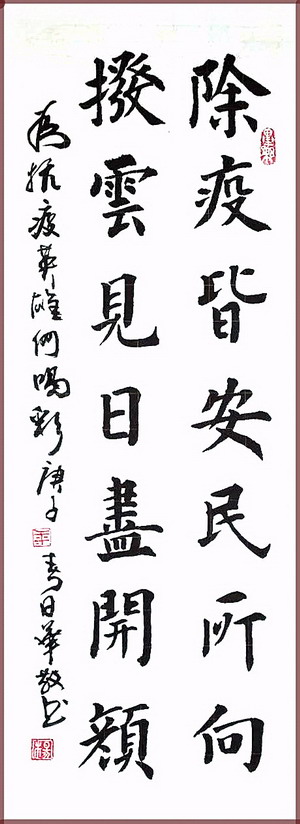 除疫皆安民所向
撥雲見日盡開顔
為抗疫英雄们喝彩 庚子 春日華敬书